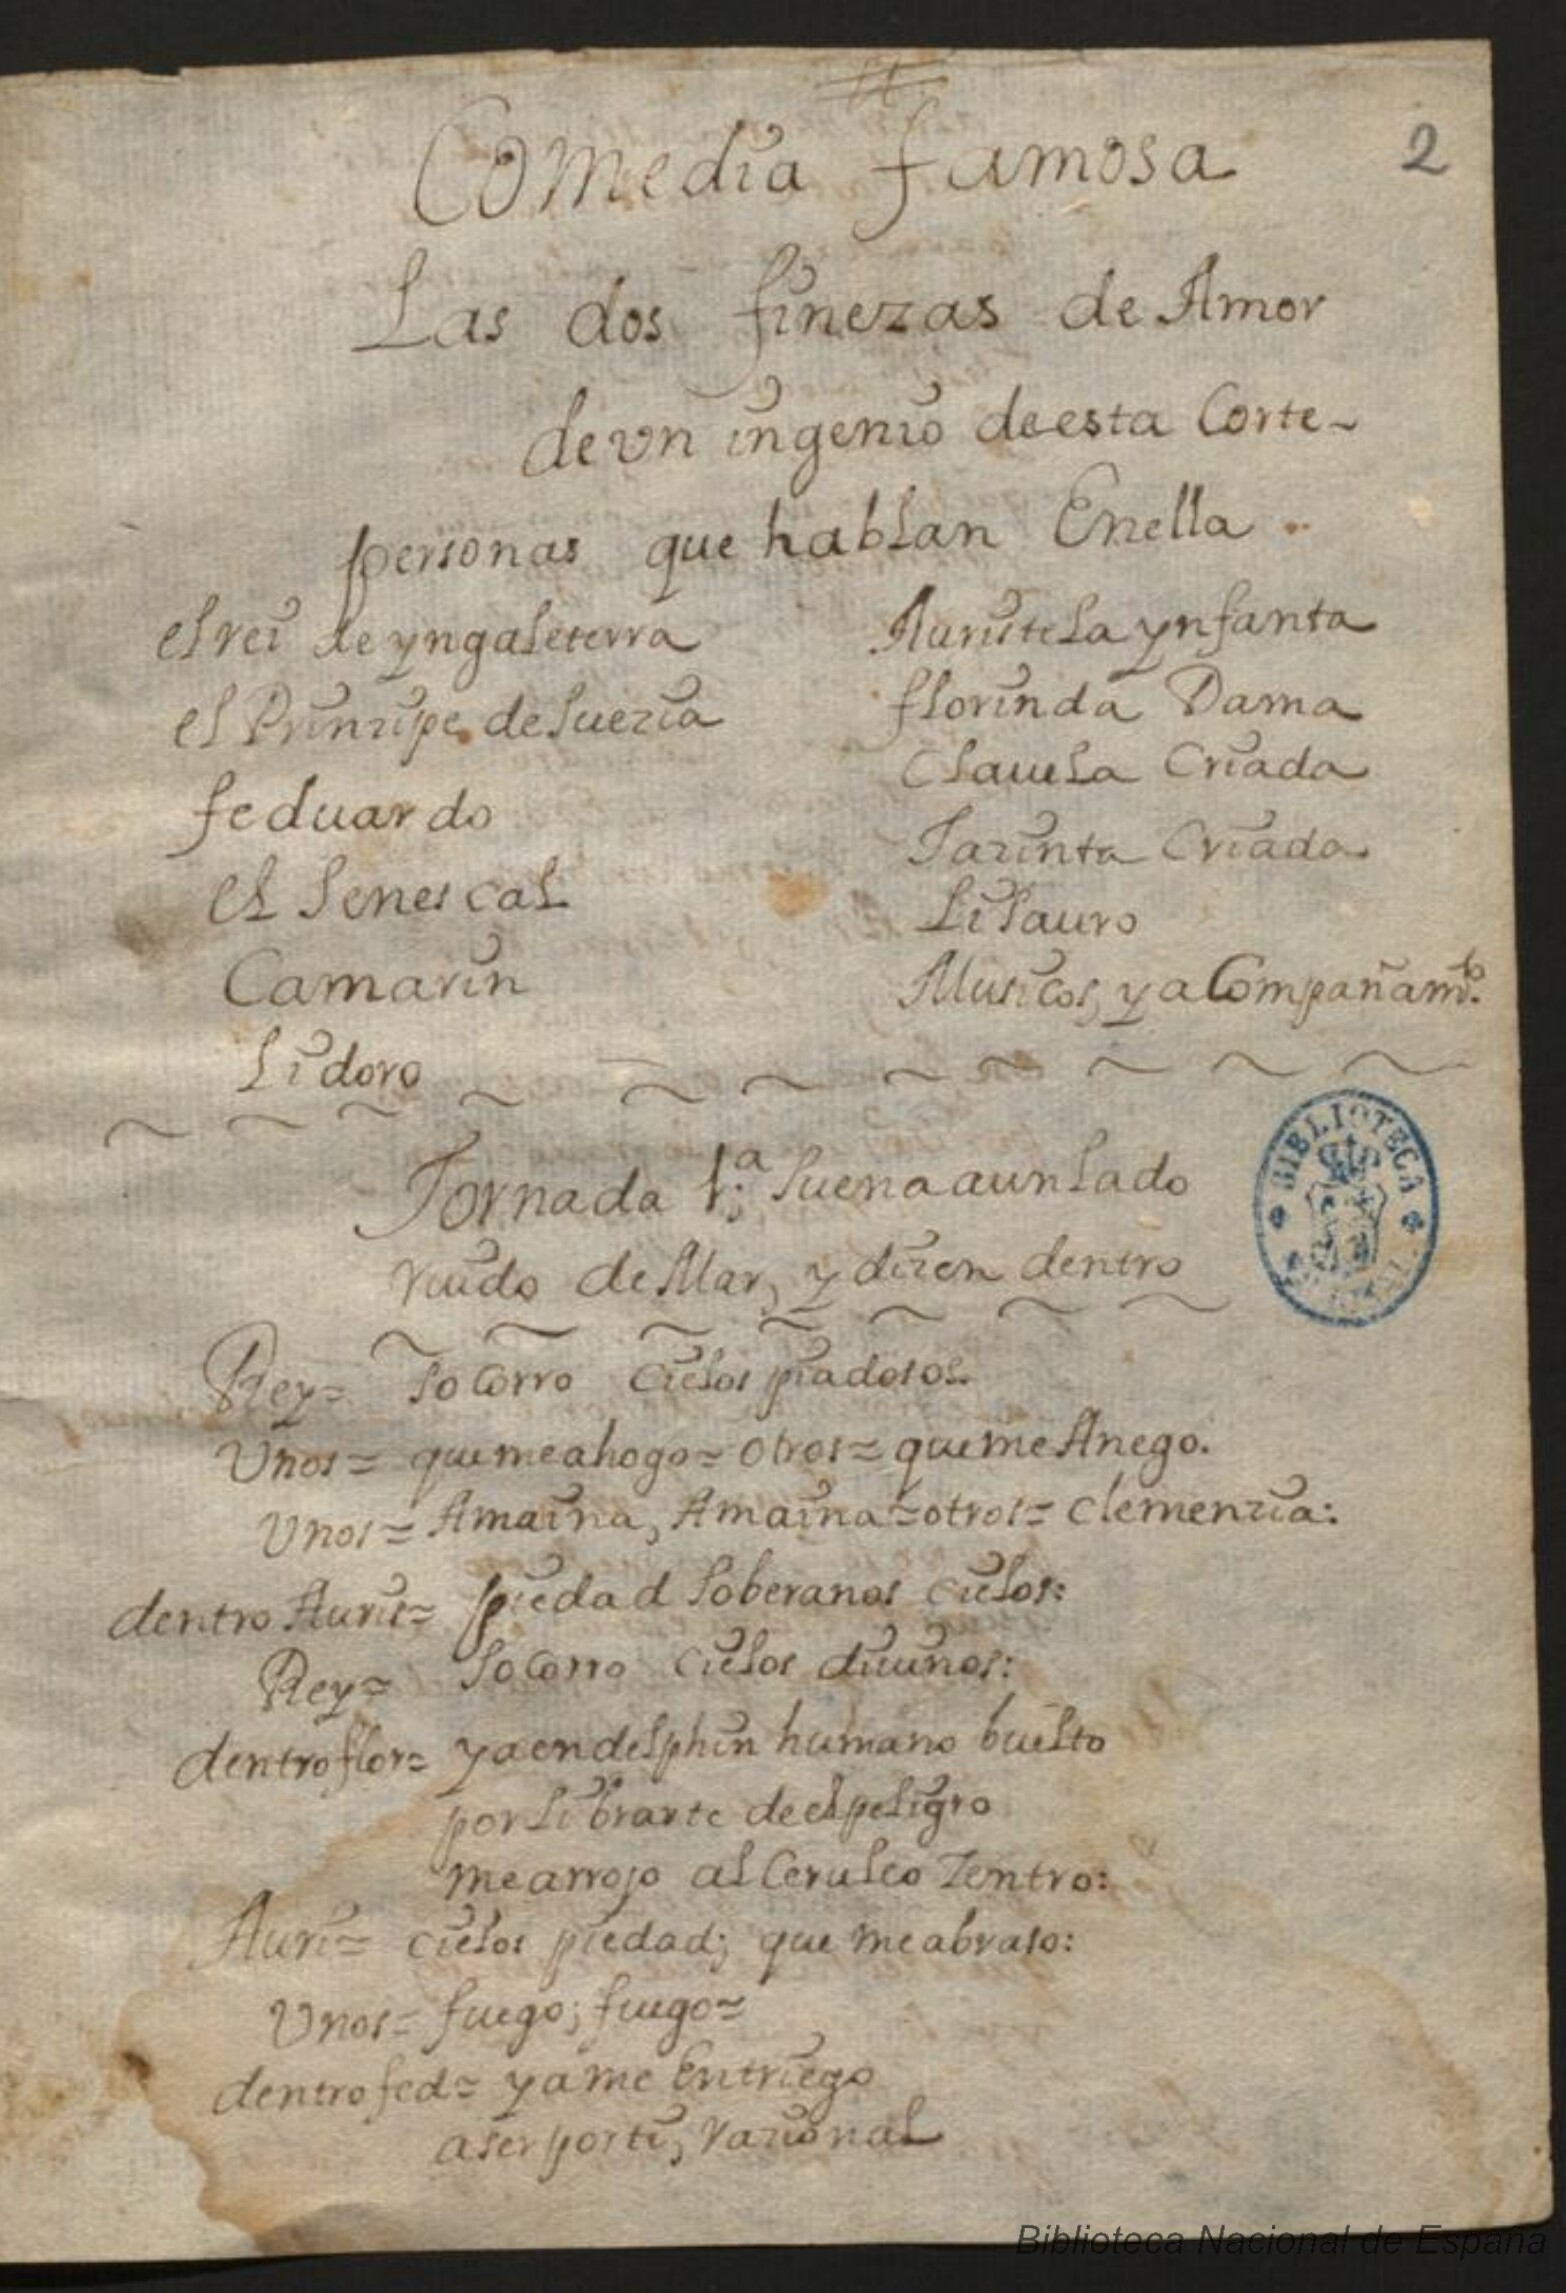 2
Comedia famosa
Las dos finezas de Amor
de vn ingenio de esta Corte~
personas que hablan Enella
el rei de yngaleterra
Auristela ynfanta
el Prinzipe de Suezia
florinda Dama
feduardo
Clauela Criada
el Senescal
Jazinta Criada
Camarin
Lisauro
Lidoro
Musicos, y aCompañamto.
Jornada 1.ª Suena aun lado
ruido de Mar, y dizen dentro
Rey= socorro cielos piadosos.
Unos= que me ahogo= otros= que me Anego.
Unos= Amaina, Amaina= otros= clemenzia:
dentro Auris= piedad Soberanos cielos:
Rey= Socorro cielos diuinos:
dentro flor= ya en delphin humano buelto
por librarte de el peligro
me arrojo al Ceruleo Zentro:
Auri= cielos piedad; que me abraso:
Unos= fuego; fuego=
dentro fed= ya me Entriego
a ser por ti, razional
BIBLIOTECA
Biblioteca Nacional de España